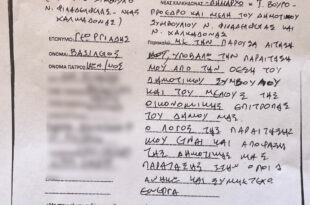 ΣΥΜΒΟΥΛΟ
Ν. ΦΙΛΑΔΕΛΦΕΙΑΣ - ΝΕΑΣ
ΧΑΛΚΗΔΟΝΑΣ
ΕΠΩΝΥΜΟ: ΓΕΩΡΓΙΑΔΗΣ
ΟΝΟΜΑ: ΒΑΣΙΛΕΙΟΣ
ΟΝΟΜΑ ΠΑΤΡΟΣ:
ΝΕΑΣ ΧΑΛΚΗΔΟΝΑΣ - ΔΗΜΑΡΧΟ Γ. ΒΟΥΡΟ
ΠΡΟΕΔΡΟ ΚΑΙ ΜΕΛΗ ΤΟΥ ΔΗΜΟΤΙΚΟΥ
ΣΥΜΒΟΥΛΙΟΥ Ν. ΦΙΛΑΔΕΛΦΕΙΑΣ ΚΑΙ
Ν. ΧΑΛΚΗΔΟΝΑΣ
ΜΕ ΤΗΝ ΠΑΡΟΥΣΑ ΑΙΤΗΣΗ
ΜΟΥ, ΥΠΟΒΑΛΩ ΤΗΝ ΠΑΡΑΙΤΗΣΗ
ΜΟΥ ΑΠΟ ΤΗΝ ΘΕΣΗ ΤΟΥ
ΔΗΜΟΤΙΚΟΥ ΣΥΜΒΟΥΛΟΥ
ΚΑΙ ΤΟΥ ΜΕΛΟΥΣ ΤΗΣ
ΟΙΚΟΝΟΜΙΚΗΣ ΕΠΙΤΡΟΠΗΣ
ΤΟΥ ΔΗΜΟΥ ΜΑΣ
Ο ΛΟΓΟΣ ΤΗΣ ΠΑΡΑΙΤΗΣΗΣ
ΜΟΥ ΕΙΝΑΙ ΚΑΙ ΑΠΟΦΑΣΗ
ΤΗΣ ΔΗΜΟΤΙΚΗΣ ΜΑΣ
ΠΑΡΑΤΑΞΗΣ ΣΤΗΝ ΟΠΟΙΑ
ΑΝΗΚΩ ΚΑΙ ΣΥΜΜΕΤΕΧΩ
ΕΝΕΡΓΑ